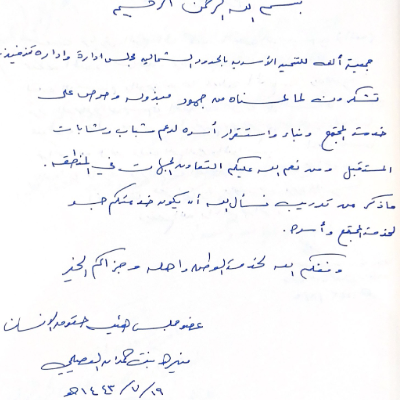 بسم الله الرحمن الرحيم
جمعية ألفه للتنمية الأسرية بالحدود الشمالية مجلس ادارة وادارة تنفيذية
تشكرون لما لمسناه من جهود مبذوله وحرص على
خدمة المجتمع وبناء واستقرار أسره لدعم شباب وشابات
المستقبل ومن نعم الله عليكم التعاون الجهات في المنطقه .
ماذكر من تدريب نسأل الله أن يكون خدمتكم
لخدمة المجتمع وأسره .
وفقكم الله لخدمة الوطن واهله وجزاكم الخير
عضو مجلس هيئة حقوق الإنسان
منيرة بنت حمدان العصيمي
١٤٤٣/٧/١٩هـ